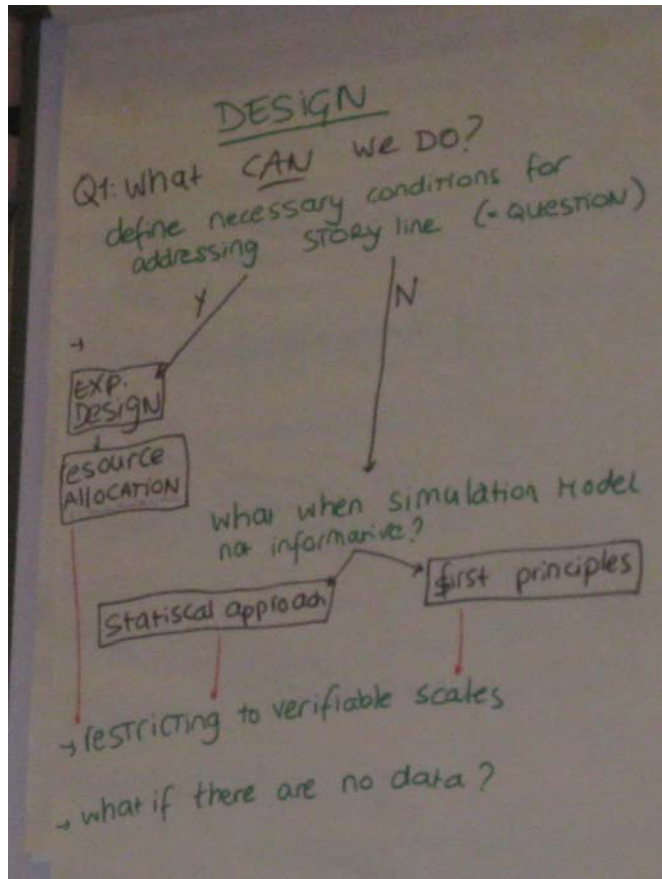 DESIGN
Q1: What CAN we DO?
define necessary conditions for
addressing STORY line (= QUESTION)
Y
N
→
EXP.
DESigN
esource
AllOCATION
what when simulation Model
not informative?
Statiscal approach
first principles
→ restricting to verifiable scales
→ what if there are no data?